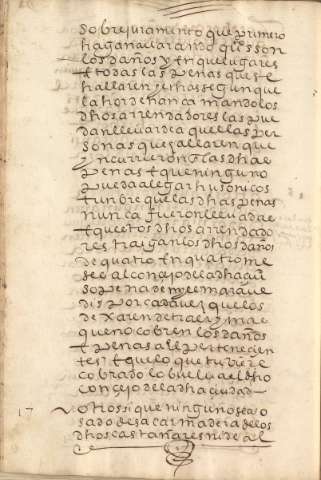 sobre juramento que primero
hagan aviarando que son
los daños y en que lugares
E todas las penas que se
hallaren y echas segun que
la hordenança mandolos
dhos arrendadores las pue
dan llevar de aquellas per
sonas que hallaren que
yncurrieron En las dhas
penas E que ninguno
pueda alegar husoni cos
tunbre que las dhas penas
nunca fueron llevadas
E que estos dhos arrendado
res traigan los dhos daños
de quatro En quatro me
ses al conçejo de la dha çiu
so pena de myll marave
dis por cada vez que los
dexaren de traer y mas
que no cobren los daños
E penas a el pertenecien
tes E que lo que tubiere
cobrado lo buelva al dho
conçejo de la dha ciudad
17 Otrossi que ninguno sea o
sado de sacar madera de los
dhos castañares ni de al